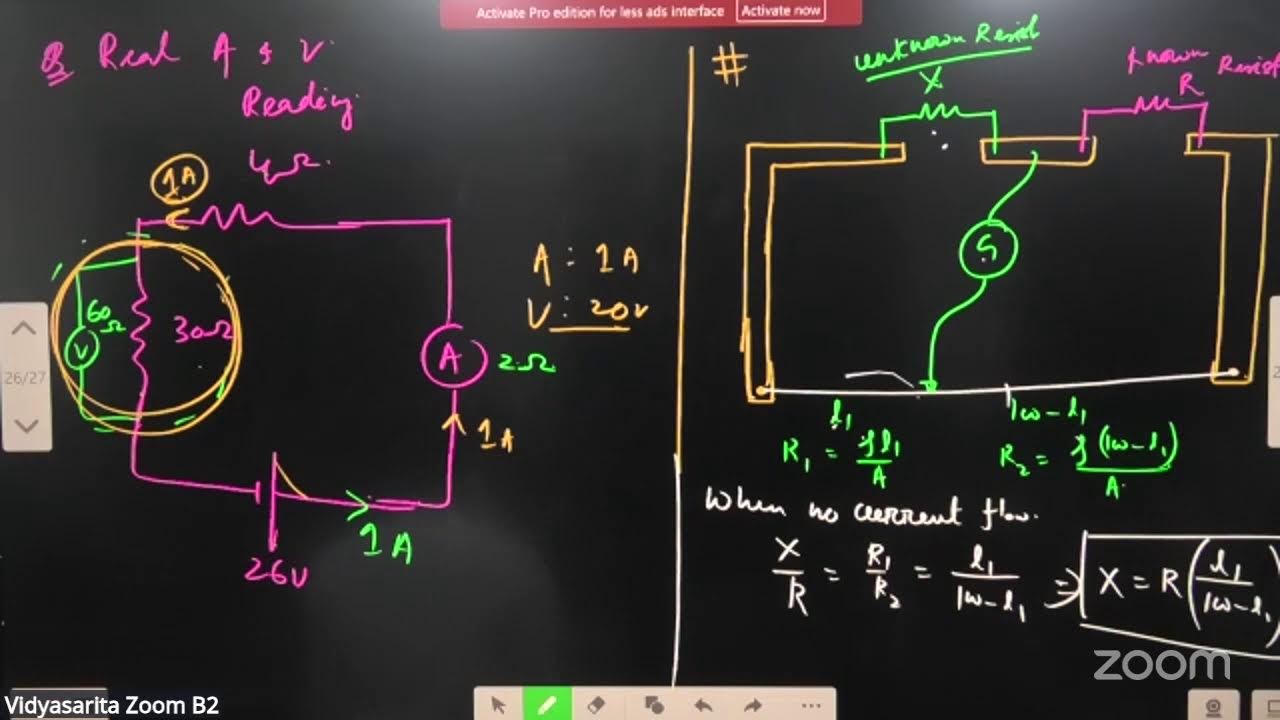 Activate Pro edition for less ads interface Activate now
Q Real A & V
Reading
4Ω
1A
60
Ω
V
30Ω
A
2Ω
1A
1A
26V
A : 1A
V : 20V
26/27
#
unknown Resist
X
known Resist
R
G
l₁
100-l₁
R₁ = ρl₁/A
R₂ = ρ(100-l₁)/A
When no current flow.
X/R = R₁/R₂ = l₁/100-l₁ ⇒ X = R(l₁/100-l₁)
zoom
Vidyasarita Zoom B2